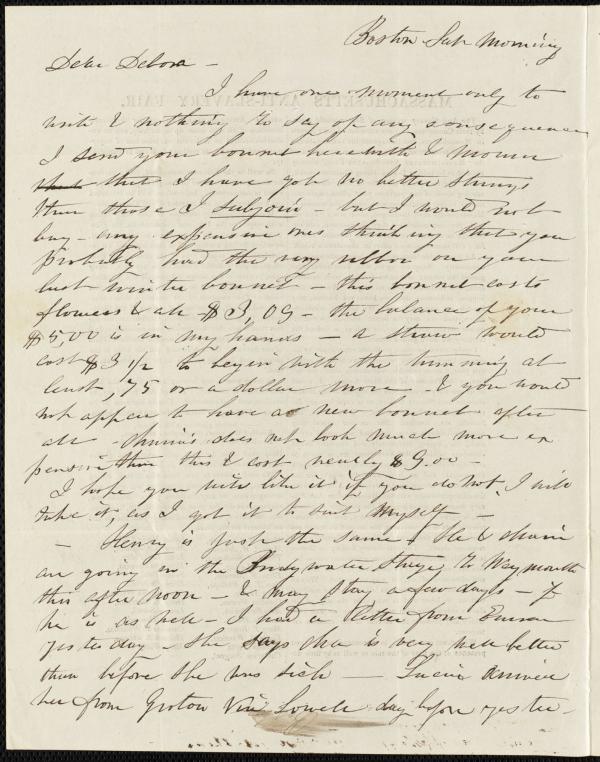 Boston Sat Morning
Dear Debora -
I have one moment only to
write & nothing to say of any consequence
I send your bonnet herewith & mourn
that that I have got no better strings
than those I subjoin - but I would not
buy - any expensive ones thinking that you
probably had the very ribbon on your
last winter bonnet - this bonnet costs
flowers & all $3,09 - the balance of your
$5,00 is in my hands - a straw would
cost $3 1/2 to begin with the trimming at
least ,75 or a dollar more - & you would
not appear to have a new bonnet after
all - Annie's does not look much more ex
pensive than this & cost nearly $9.00 -
I hope you will like it if you do not I will
take it, as I got it to suit myself -
- Henry is just the same. He &
are going in the Bridgwater Stage to Weymouth
this afternoon - & may stay a few days - if
he is as well - I had a letter from Emma
yesterday - She says she is very well better
than before she was sick - Lucia arrived
here from Groton via Lowell day before yester-
MASSACHUSETTS ANTI-SLAVERY FAIR.